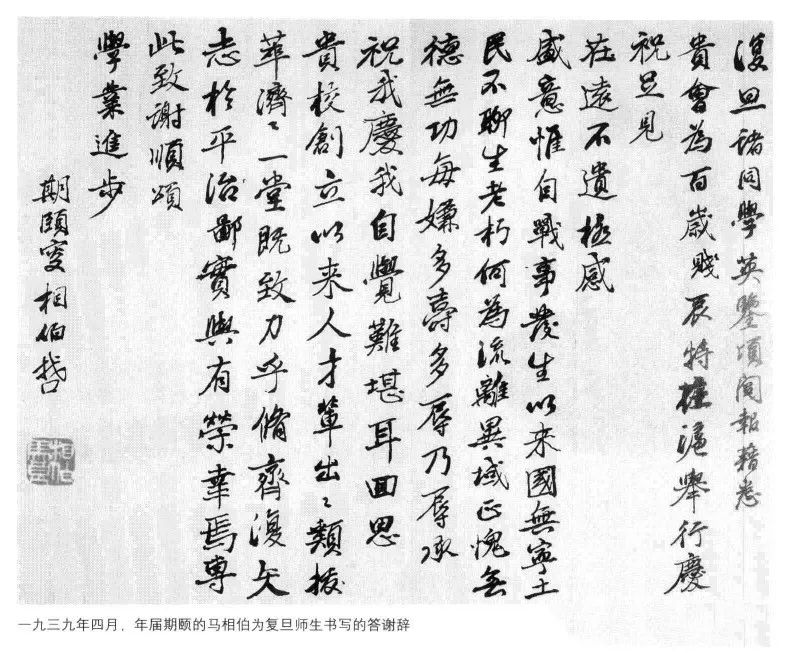 復旦諸同學英鑒頃閱報藉悉
貴會為百歲賤辰特在滬舉行慶
祝足見
莊遠不遺極感
盛意惟自戰事發生以來國無寧土
民不聊生老朽何為流離異域正愧無
德無功每嫌多壽多辱乃辱承
祝我慶我自覺難堪耳回思
貴校創立以来人才輩出出類拔
萃濟濟一堂既致力乎脩齊復矢
志於平治鄙實與有榮幸焉專
此致謝順頌
學業進步
期頤叟相伯
一九三九年四月，年届期颐的马相伯为复旦师生书写的答谢辞